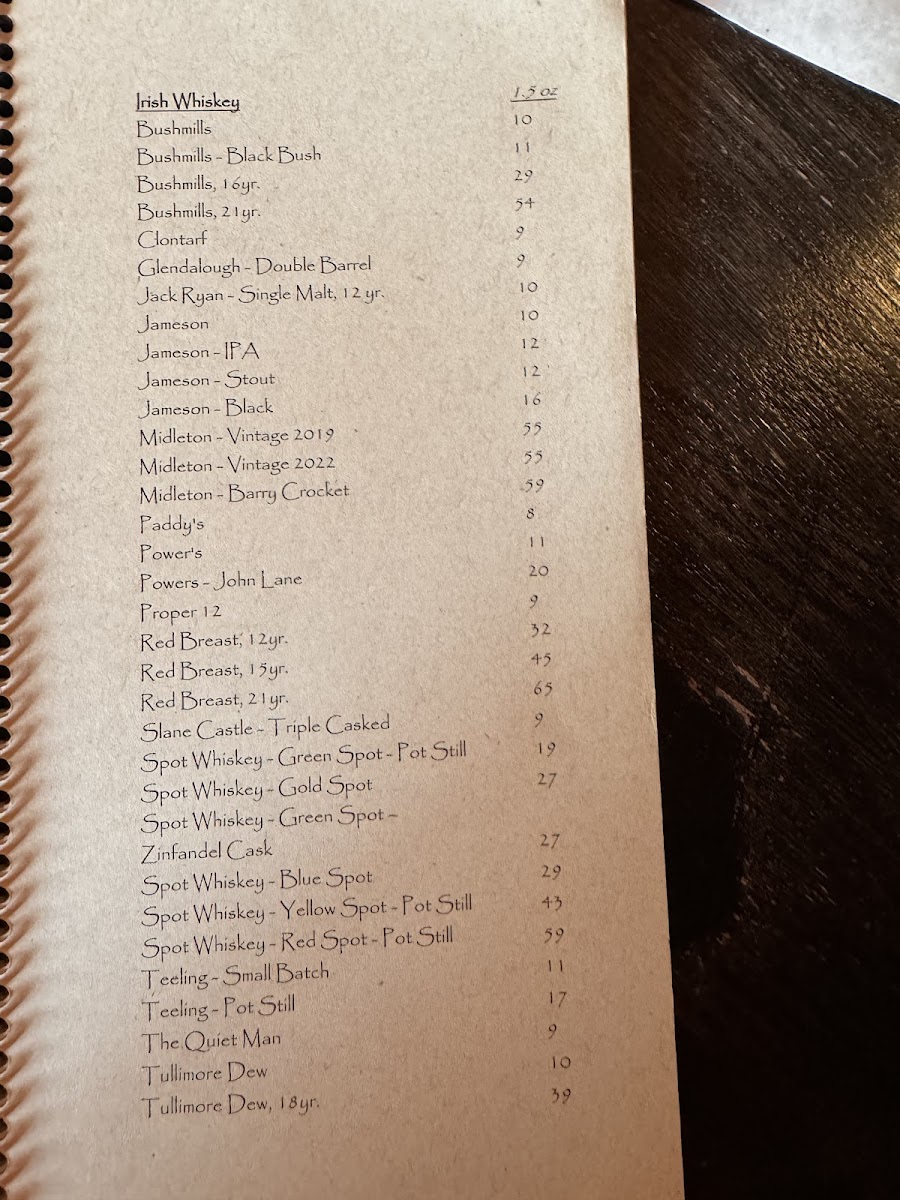 Irish Whiskey 1.5 oz
Bushmills 10
Bushmills - Black Bush 11
Bushmills, 16yr. 29
Bushmills, 21yr. 54
Clontarf 9
Glendalough - Double Barrel 9
Jack Ryan - Single Malt, 12 yr. 10
Jameson 10
Jameson - IPA 12
Jameson - Stout 12
Jameson - Black 16
Midleton - Vintage 2019 55
Midleton - Vintage 2022 55
Midleton - Barry Crocket 59
Paddy's 8
Power's 11
Powers - John Lane 20
Proper 12 9
Red Breast, 12yr. 32
Red Breast, 15yr. 45
Red Breast, 21yr. 65
Slane Castle - Triple Casked 9
Spot Whiskey - Green Spot - Pot Still 19
Spot Whiskey - Gold Spot 27
Spot Whiskey - Green Spot –
Zinfandel Cask 27
Spot Whiskey - Blue Spot 29
Spot Whiskey - Yellow Spot - Pot Still 43
Spot Whiskey - Red Spot - Pot Still 59
Teeling - Small Batch 11
Teeling - Pot Still 17
The Quiet Man 9
Tullimore Dew 10
Tullimore Dew, 18yr. 39